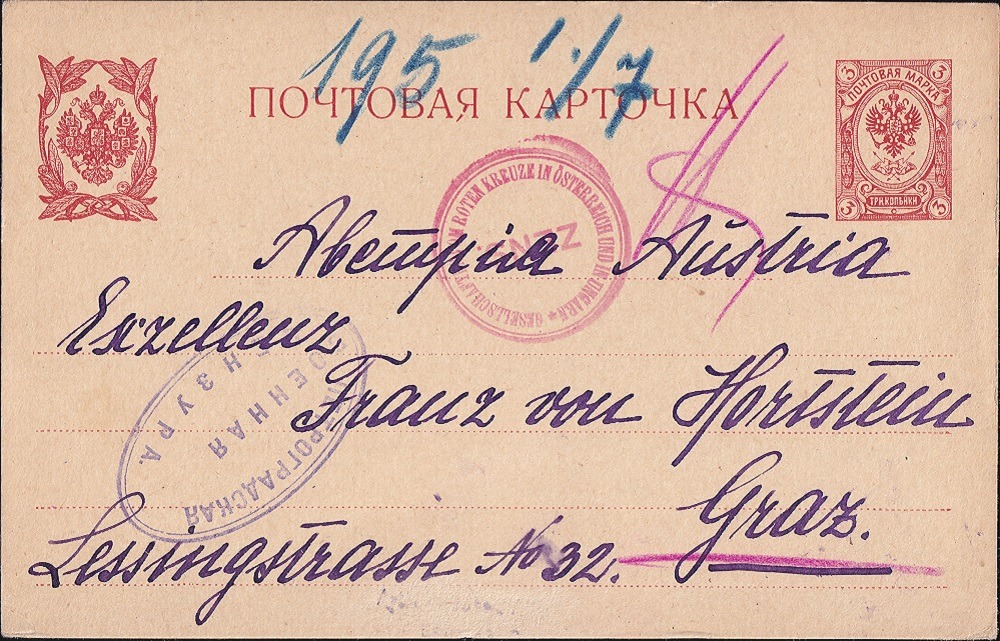 195 1./7
ПОЧТОВАЯ КАРТОЧКА
3 3
ПОЧТОВАЯ МАРКА
ТРИ КОПѢЙКИ
3 3
GESELLSCHAFT VOM ROTEN KREUZE IN ÖSTERREICH UND IN UNGARN *
Австрія Austria
Exzellenz
Franz von Hortstein
Graz.
Lessingstrasse No 32.
ПЕТРОГРАДСКАЯ
ВОЕННАЯ
ЦЕНЗУРА.